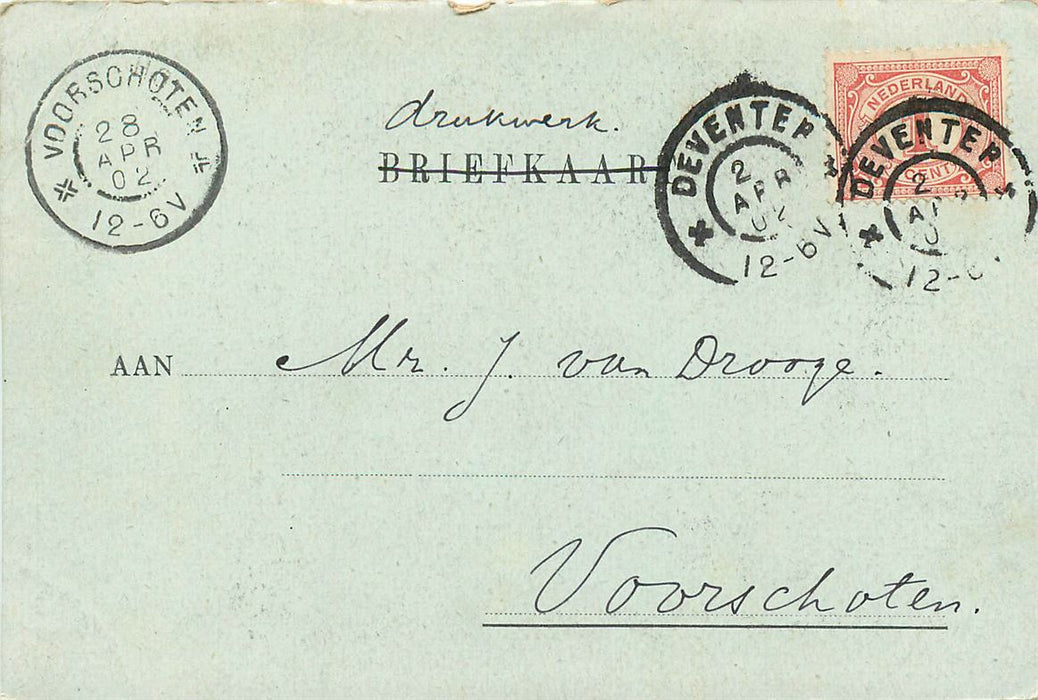 VOORSCHOTEN
28
APR
02
12-6V
drukwerk.
BRIEFKAAR
DEVENTER
2
APR
02
12-6V
NEDERLAND
CENT
DEVENTER
2
12-
AAN Mr. J. van Drooge.
Voorschoten.